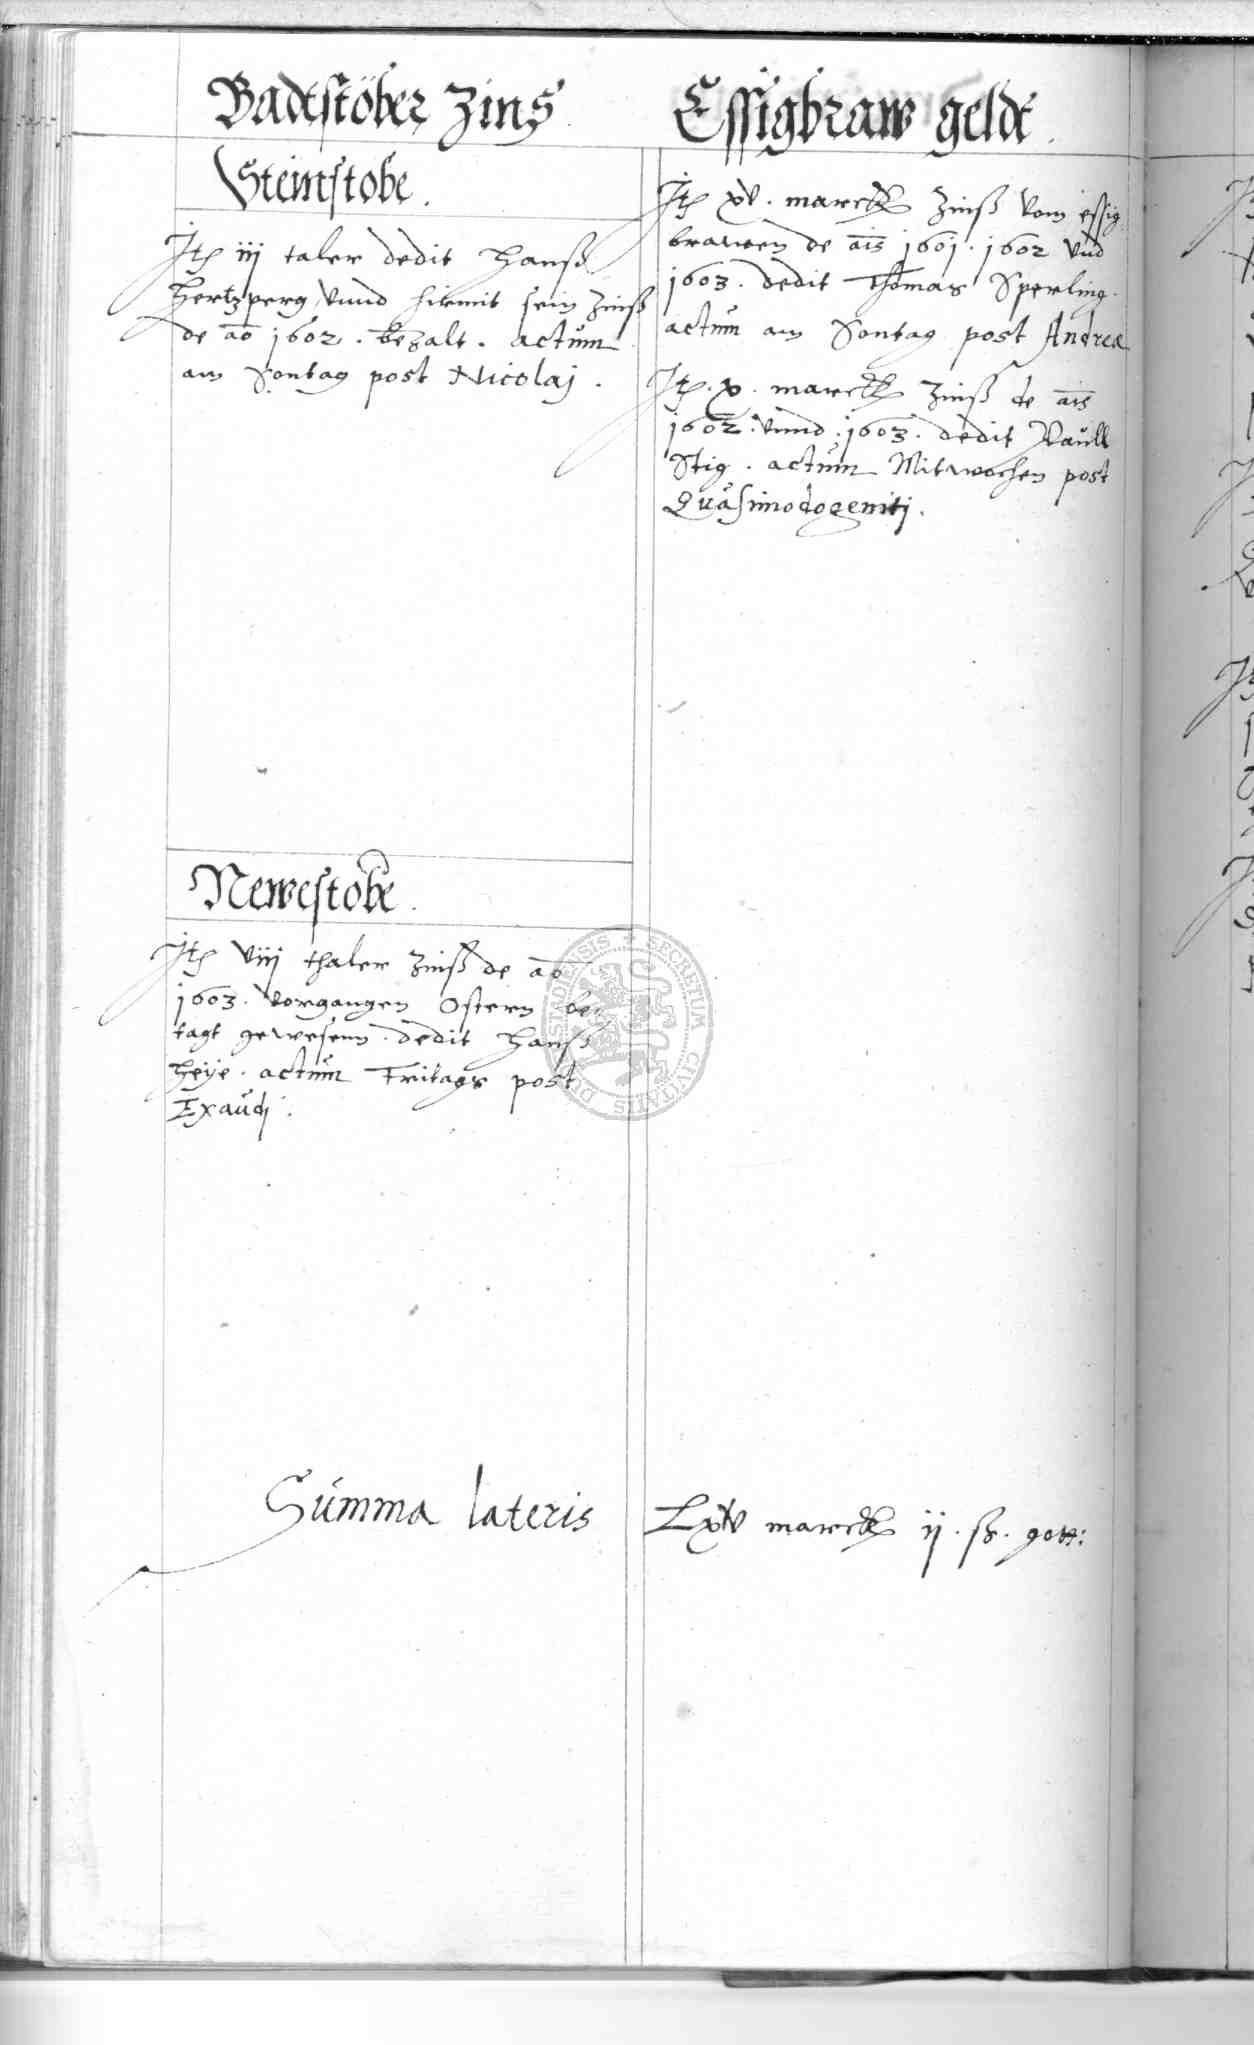 Badtstöber Zins
Steinstobe.
Itē iij taler dedit Hanß
Hertzperg vnnd hiemit sein Zinß
de aō 1602. bezalt. actum
am Sontag post Nicolaj.
Newestobe.
Itē viij thaler Zinß de aō
1603. vorgangen Ostern be-
tagt gewesenn. dedit Hanß
Heÿe. actum Fritags post
Exaudj.
Essigbraw geldt.
Itē xv. marck Zinß vom essig
brawen de aīs 1601. 1602 vnd
1603. dedit Thomas Sperling.
actum am Sontag post Andreæ
Itē. x. marck Zinß de aīs
1602. vnnd. 1603. dedit Paull
Stig. actum Mitwochen post
Quasimodogenitj.
Summa lateris Lxv marck ij. ß. gott:
SECRETUM CIVITATIS DUDERSTADENSIS